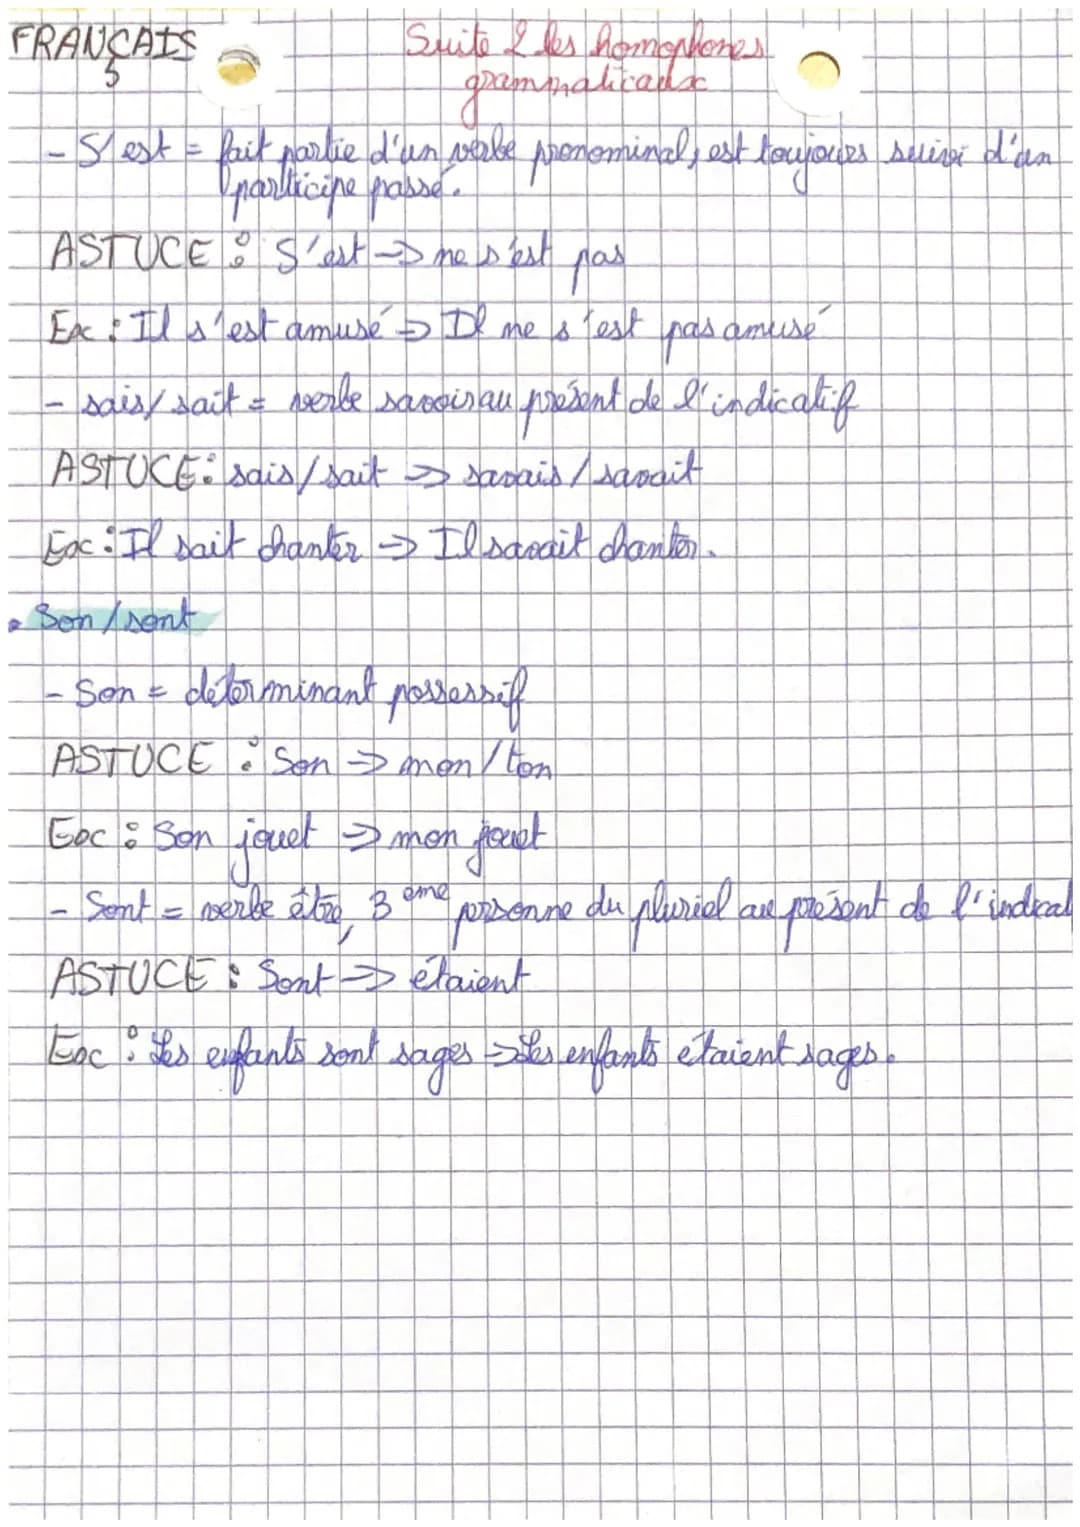 FRANÇAIS
5
Suite 2 les homophones
grammaticaux
- S'est = fait partie d'un verbe pronominal, est toujours suivi d'un
participe passé.
ASTUCE : S'est => ne s'est pas
Ex : Il s'est amusé => Il ne s'est pas amusé
- sais/sait = verbe savoir au présent de l'indicatif
ASTUCE : sais/sait => savais/savait
Ex : Il sait chanter => Il savait chanter.
• Son/sont
- Son = déterminant possessif
ASTUCE : Son => mon/ton
Ex : Son jouet => mon jouet
- Sont = verbe être, 3 eme personne du pluriel au présent de l'indicat
ASTUCE : Sont => étaient
Ex : Les enfants sont sages => Les enfants étaient sages.